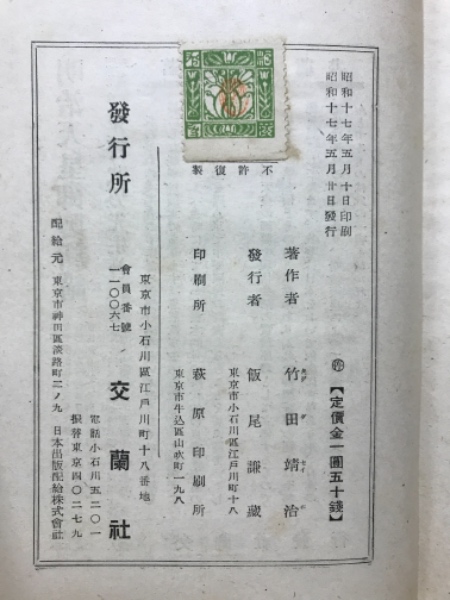 昭和十七年五月十日印刷
昭和十七年五月廿日發行
㊞【定價金一圓五十錢】
著作者 竹田靖治
發行者 飯尾謙藏
東京市小石川區江戸川町十八
印刷所 萩原印刷所
東京市牛込區山吹町一九八
不許復製
發行所 交蘭社
東京市小石川區江戸川町十八番地
會員番號
一一〇〇六七
電話小石川五二〇一
振替東京四〇二七九
配給元 東京市神田區淡路町二ノ九 日本出版配給株式會社